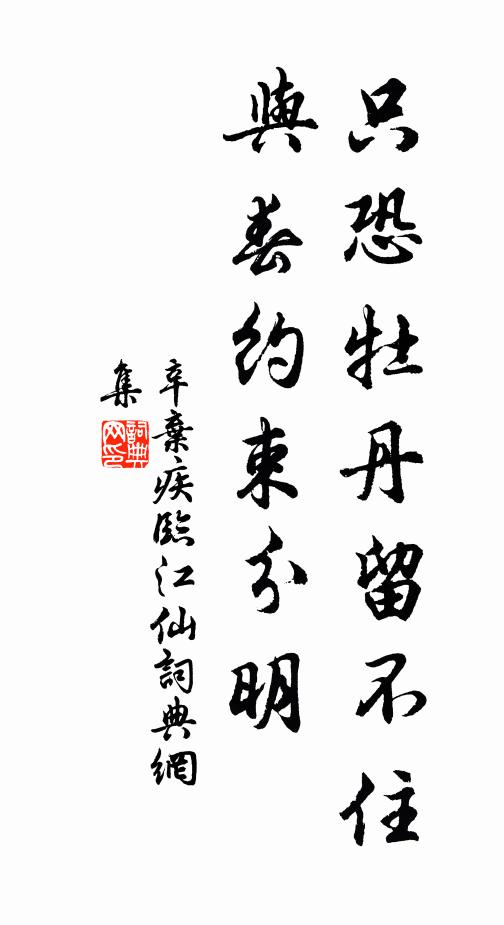 只恐牡丹留不住
與春約束分明
辛棄疾臨江仙詞典網
集
詞典网印